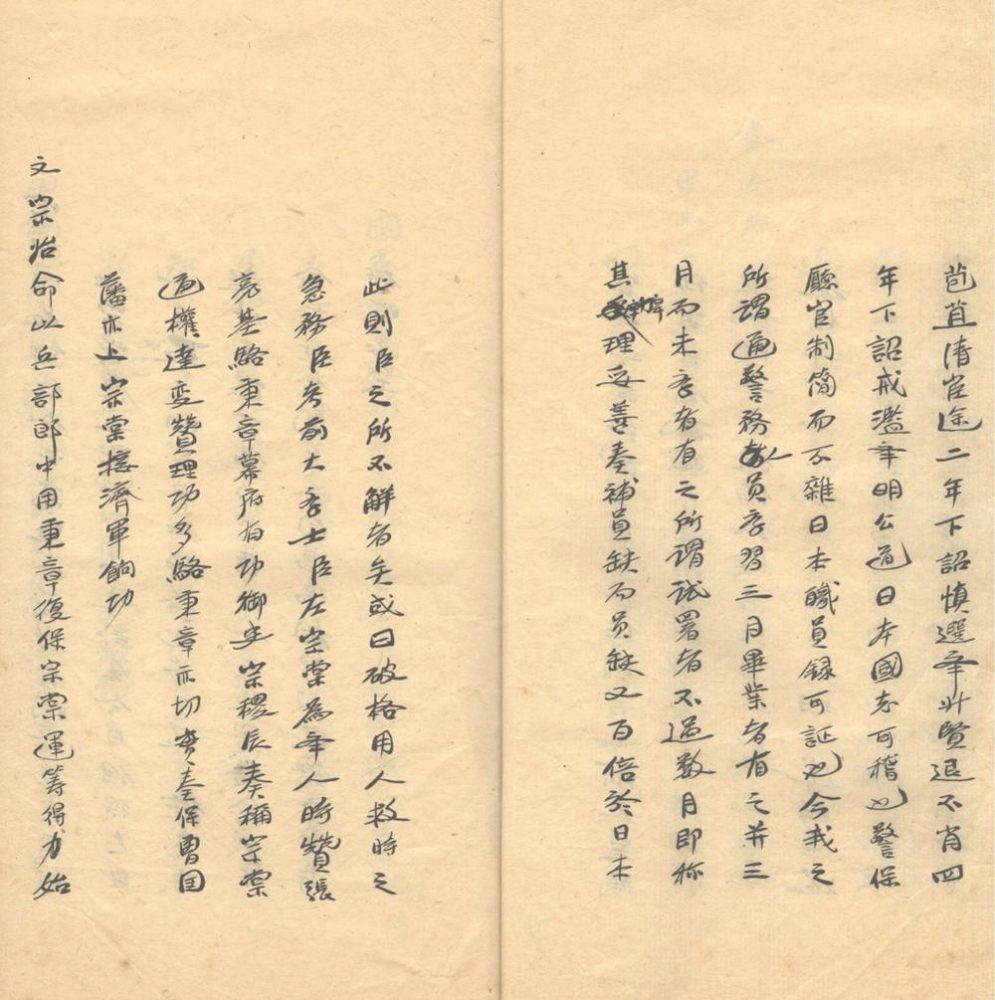 苞苴清宦途二年下詔慎選举廾賢退不肖四
年下詔戒濫举明公道日本國志可稽也警保
廳官制簡而不雜日本職員録可証也今我之
所謂通警務人員斈習三月畢業者有之并三
月而未斈者有之所謂試署者不過数月即称
其辦理妥善奏補員缺而员缺又百倍於日本
此則臣之所不解者矣或曰破格用人救時之
急務臣考前大斈士臣左宗棠為举人時赞張
亮基駱秉章幕府有功御史宗稷辰奏稱宗棠
通權達变贊理功多駱秉章亦切實奏保曾囯
藩亦上宗棠接濟軍餉功
文宗始命以兵部郎中用秉章復保宗棠運筹得力始